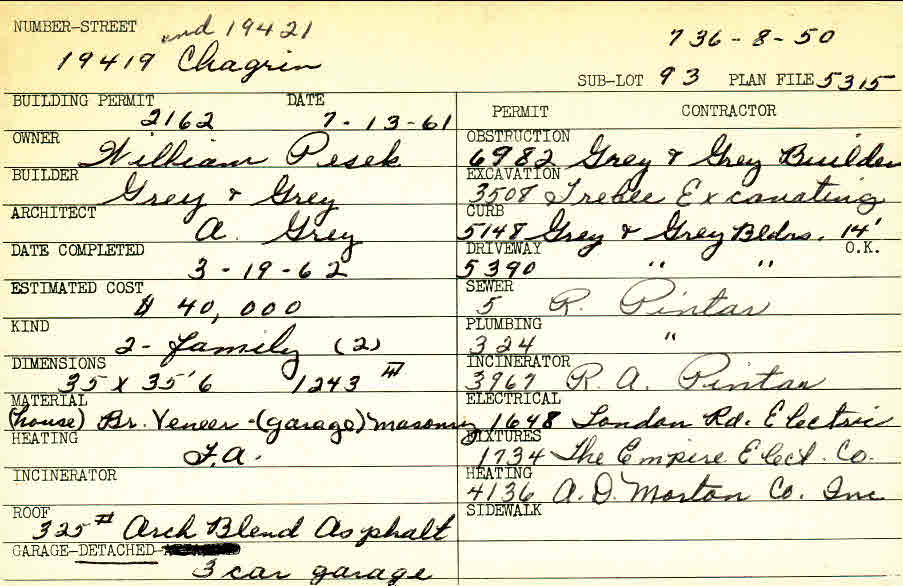 NUMBER-STREET and 19421
19419 Chagrin
736-8-50
SUB-LOT 93 PLAN FILE 5315
BUILDING PERMIT DATE
2162 7-13-61
OWNER
William Pesek
BUILDER
Grey & Grey
ARCHITECT
A. Grey
DATE COMPLETED
3-19-62
ESTIMATED COST
$ 40,000
KIND
2-family (2)
DIMENSIONS
35 x 35'6 1243 #
MATERIAL
(house) Br. Veneer-(garage) masonry
HEATING
F.A.
INCINERATOR
ROOF
325# Arch Blend Asphalt
GARAGE-DETACHED-
3 car garage
PERMIT CONTRACTOR
OBSTRUCTION
6982 Grey & Grey Builder
EXCAVATION
3508 Excavating
CURB
5148 Grey & Grey Bldrs. 14'
DRIVEWAY O.K.
5390 " "
SEWER
5 R. Pintar
PLUMBING
324 "
INCINERATOR
3967 R. A. Pintar
ELECTRICAL
1648 London Rd. Electric
FIXTURES
1734 The Empire Elect. Co.
HEATING
4136 A. D. Morton Co. Inc
SIDEWALK